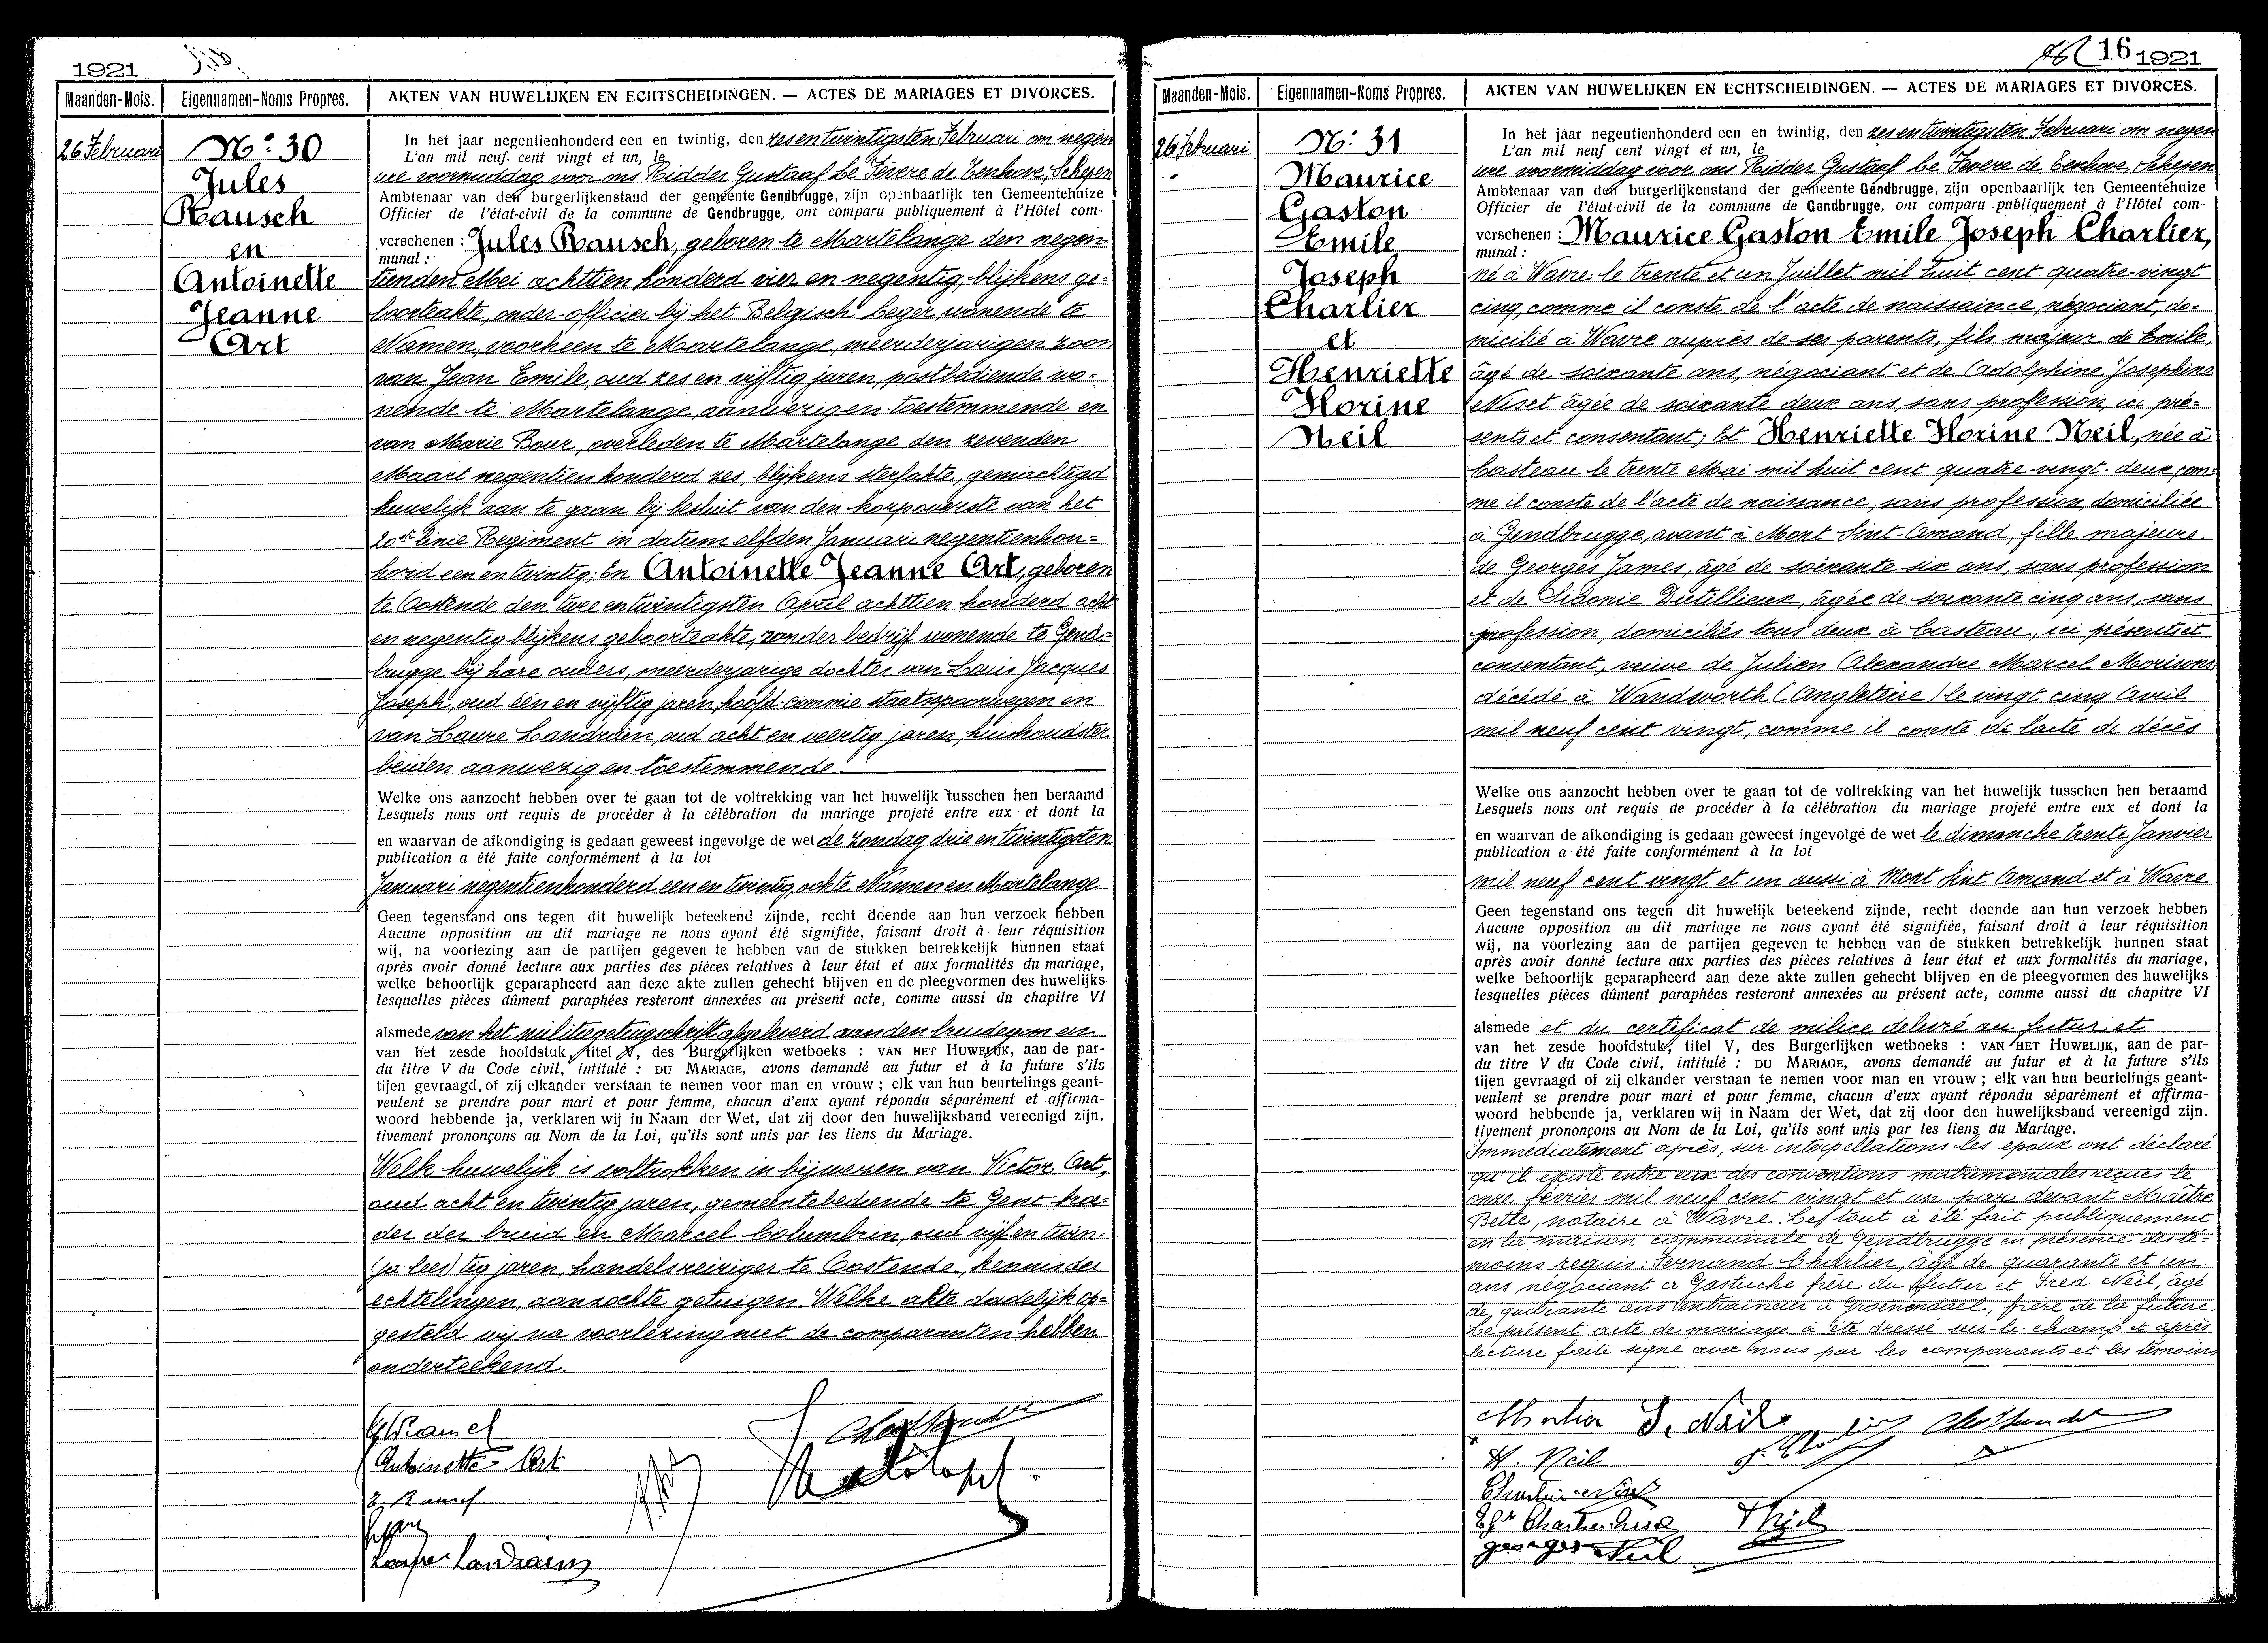 1921
Maanden-Mois.
Eigennamen-Noms Propres.
AKTEN VAN HUWELIJKEN EN ECHTSCHEIDINGEN. — ACTES DE MARIAGES ET DIVORCES.
26 Februari
No: 30
Jules
Rausch
en
Antoinette
Jeanne
Art
In het jaar negentienhonderd een en twintig, den zesentwintigsten Februari om negen
L'an mil neuf cent vingt et un, le
ure voormiddag voor ons Ridder Gustaaf Le Fevere de Tenhove, Schepen
Ambtenaar van den burgerlijkenstand der gemeente Gendbrugge, zijn openbaarlijk ten Gemeentehuize
Officier de l'état-civil de la commune de Gendbrugge, ont comparu publiquement à l'Hôtel com-
verschenen : Jules Rausch, geboren te Martelange den negen
munal :
tienden Mei achttien honderd vier en negentig, blijkens ge-
boorteakte, onder-officier bij het Belgisch leger wonende te
Namen, voorheen te Martelange, meerderjarigen zoon
van Jean Emile, oud zes en vijftig jaren, postbediende wo-
nende te Martelange, aanwezig en toestemmende en
van Marie Bour, overleden te Martelange den zevenden
Maart negentien honderd zes, blijkens sterfakte, gemachtigd
huwelijk aan te gaan bij besluit van den korpsoverste van het
20ste linie Regiment in datum elfden Januari negentienhon-
herd een en twintig; En Antoinette Jeanne Art, geboren
te Oostende den twee en twintigsten April achttien honderd acht
en negentig blijkens geboorteakte, zonder bedrijf wonende te Gend-
brugge bij hare ouders, meerderjarige dochter van Louis Jacques
Joseph, oud één en vijftig jaren, hoofd-commie staatsspoorwegen en
van Laure Landrien, oud acht en veertig jaren, huishoudster
beiden aanwezig en toestemmende.
Welke ons aanzocht hebben over te gaan tot de voltrekking van het huwelijk tusschen hen beraamd
Lesquels nous ont requis de procéder à la célébration du mariage projeté entre eux et dont la
en waarvan de afkondiging is gedaan geweest ingevolge de wet de Zondag drie en twintigsten
publication a été faite conformément à la loi
Januari negentienhonderd een en twintig ook te Namen en Martelange
Geen tegenstand ons tegen dit huwelijk beteekend zijnde, recht doende aan hun verzoek hebben
Aucune opposition au dit mariage ne nous ayant été signifiée, faisant droit à leur réquisition
wij, na voorlezing aan de partijen gegeven te hebben van de stukken betrekkelijk hunnen staat
après avoir donné lecture aux parties des pièces relatives à leur état et aux formalités du mariage,
welke behoorlijk geparapheerd aan deze akte zullen gehecht blijven en de pleegvormen des huwelijks
lesquelles pièces dûment paraphées resteront annexées au présent acte, comme aussi du chapitre VI
alsmede van het militiegetuigschrift afgeleverd aan den bruidegom en
van het zesde hoofdstuk, titel V, des Burgerlijken wetboeks : VAN HET HUWELIJK, aan de par-
du titre V du Code civil, intitulé : DU MARIAGE, avons demandé au futur et à la future s'ils
tijen gevraagd of zij elkander verstaan te nemen voor man en vrouw ; elk van hun beurtelings geant-
veulent se prendre pour mari et pour femme, chacun d'eux ayant répondu séparément et affirma-
woord hebbende ja, verklaren wij in Naam der Wet, dat zij door den huwelijksband vereenigd zijn.
tivement prononçons au Nom de la Loi, qu'ils sont unis par les liens du Mariage.
Welk huwelijk is voltrokken in bijwezen van Victor Art,
oud acht en twintig jaren, gemeentebediende te Gent broe-
der der bruid en Marcel Columbrin, oud vijf en twin-
(ja lees) tig jaren, handelsreiziger te Oostende, kennis der
echtelingen, aanzochte getuigen. Welke akte dadelijk op-
gesteld wij na voorlezing met de comparanten hebben
onderteekend.
Antoinette Art
16 1921
Maanden-Mois.
Eigennamen-Noms Propres.
AKTEN VAN HUWELIJKEN EN ECHTSCHEIDINGEN. — ACTES DE MARIAGES ET DIVORCES.
26 Februari
No: 31
Maurice
Gaston
Emile
Joseph
Charlier
et
Henriette
Florine
Neil
In het jaar negentienhonderd een en twintig, den zes en twintigsten Februari om negen
L'an mil neuf cent vingt et un, le
ure voormiddag voor ons Ridder Gustaaf Le Fevere de Tenhove, Schepen
Ambtenaar van den burgerlijkenstand der gemeente Gendbrugge, zijn openbaarlijk ten Gemeentehuize
Officier de l'état-civil de la commune de Gendbrugge, ont comparu publiquement à l'Hôtel com-
verschenen : Maurice Gaston Emile Joseph Charlier,
munal :
né à Wavre le trente et un Juillet mil huit cent quatre-vingt
cinq, comme il conste de l'acte de naissaince, négociant, do-
micilié à Wavre auprès de ses parents, fils majeur de Emile,
âgé de soixante ans, négociant et de Adolphine Josephine
Niset âgée de soixante deux ans, sans profession, ici pré-
sents et consentant; Et Henriette Florine Neil, née à
Casteau le trente Mai mil huit cent quatre-vingt-deux, com
me il conste de l'acte de naissance, sans profession, domiciliée
à Gendbrugge, avant à Mont Sint-Amand, fille majeure
de Georges James, âgé de soixante six ans, sans profession
et de Sidonie Dutillieux, âgée de soixante cinq ans, sans
profession, domiciliés tous deux à Casteau, ici présents et
consentant, veuve de Julien Alexandre Marcel Morisons
décédé à Wandworth (Angleterre) le vingt cinq Avril
mil neuf cent vingt, comme il conste de l'acte de décès
Welke ons aanzocht hebben over te gaan tot de voltrekking van het huwelijk tusschen hen beraamd
Lesquels nous ont requis de procéder à la célébration du mariage projeté entre eux et dont la
en waarvan de afkondiging is gedaan geweest ingevolge de wet le dimanche trente Janvier
publication a été faite conformément à la loi
mil neuf cent vingt et un aussi à Mont Sint Amand et à Wavre
Geen tegenstand ons tegen dit huwelijk beteekend zijnde, recht doende aan hun verzoek hebben
Aucune opposition au dit mariage ne nous ayant été signifiée, faisant droit à leur réquisition
wij, na voorlezing aan de partijen gegeven te hebben van de stukken betrekkelijk hunnen staat
après avoir donné lecture aux parties des pièces relatives à leur état et aux formalités du mariage,
welke behoorlijk geparapheerd aan deze akte zullen gehecht blijven en de pleegvormen des huwelijks
lesquelles pièces dûment paraphées resteront annexées au présent acte, comme aussi du chapitre VI
alsmede et du certificat de milice delivré au futur et
van het zesde hoofdstuk, titel V, des Burgerlijken wetboeks : VAN HET HUWELIJK, aan de par-
du titre V du Code civil, intitulé : DU MARIAGE, avons demandé au futur et à la future s'ils
tijen gevraagd of zij elkander verstaan te nemen voor man en vrouw ; elk van hun beurtelings geant-
veulent se prendre pour mari et pour femme, chacun d'eux ayant répondu séparément et affirma-
woord hebbende ja, verklaren wij in Naam der Wet, dat zij door den huwelijksband vereenigd zijn.
tivement prononçons au Nom de la Loi, qu'ils sont unis par les liens du Mariage.
Immédiatement après, sur interpellations les epoux ont déclaré
qu'il existe entre eux des conventions matrimoniales reçues le
onze février mil neuf cent vingt et un par devant Maître
Bette, notaire à Wavre. Ces tout à été fait publiquement
en la maison communale de Gendbrugge en présence des té-
moins requis: Fernand Charlier, âgé de quarante et un
ans négociant à Gastuche frère du futur et Fred Neil, âgé
de quarante ans entraineur à Groenendael, frère de la future.
Le présent acte de mariage à été dressé sur-le-champ et après
lecture faite signé avec nous par les comparants et les témoins
H. Neil
Georges Neil